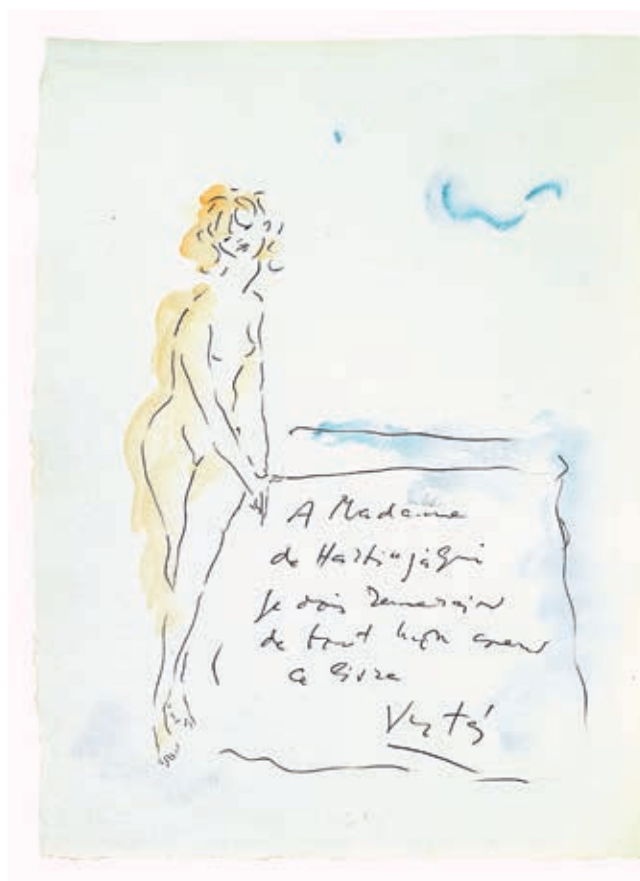 A Madame
de Hasting à qui
je dois remercier
de tout mon coeur
ce livre
Vertès